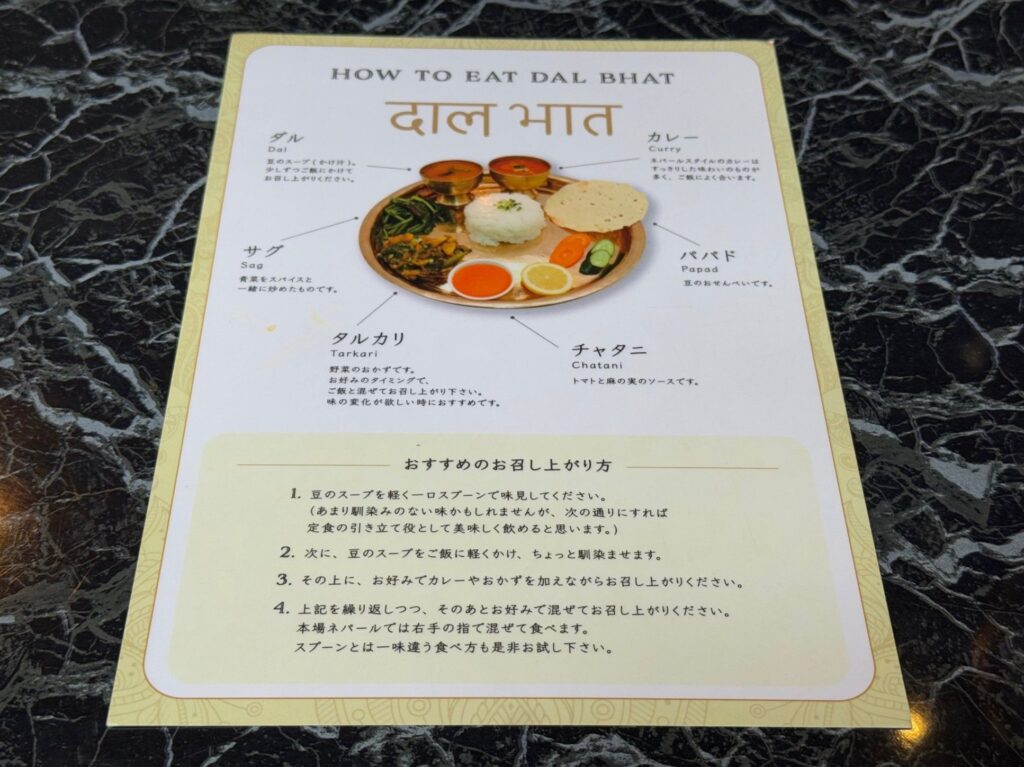 HOW TO EAT DAL BHAT
दाल भात
ダル
Dal
豆のスープ(かけ汁)。
少しずつご飯にかけて
お召し上がりください。
カレー
Curry
ネパールスタイルのカレーは
すっきりした味わいのものが
多く、ご飯によく合います。
サグ
Sag
青菜をスパイスと
一緒に炒めたものです。
パパド
Papad
豆のおせんべいです。
タルカリ
Tarkari
野菜のおかずです。
お好みのタイミングで、
ご飯と混ぜてお召し上がり下さい。
味の変化が欲しい時におすすめです。
チャタニ
Chatani
トマトと麻の実のソースです。
おすすめのお召し上がり方
1. 豆のスープを軽く一口スプーンで味見してください。
(あまり馴染みのない味かもしれませんが、次の通りにすれば
定食の引き立て役として美味しく飲めると思います。)
2. 次に、豆のスープをご飯に軽くかけ、ちょっと馴染ませます。
3. その上に、お好みでカレーやおかずを加えながらお召し上がりください。
4. 上記を繰り返しつつ、そのあとお好みで混ぜてお召し上がりください。
本場ネパールでは右手の指で混ぜて食べます。
スプーンとは一味違う食べ方も是非お試し下さい。